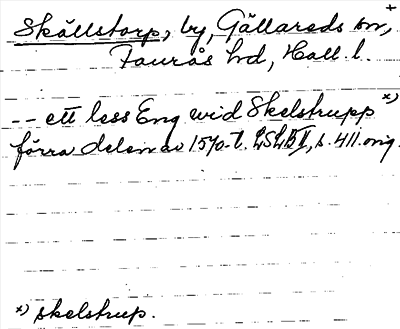 +
Skällstorp, by, Gällareds sn,
Faurås hd, Hall. l.
-- ett less Eng wid Skelstrupp x)
förra delen av 1570-t. LSLB II, s. 411. orig.
x) skelstrup.